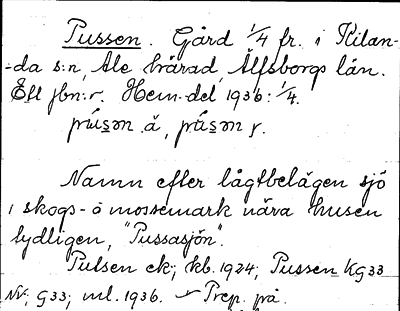 Pussen. Gård 1/4 fr. i Kilan-
-da s:n, Ale härad, Älfsborgs län.
Ett jbn:r. Hem.del 1936: 1/4.
Namn efter lågtbelägen sjö
i skogs- o mossemark nära husen
tydligen, "Pussasjön".
Pulsen ek; kb. 1924; Pussen KG33
NV; G33; ml. 1936. Prep. på.